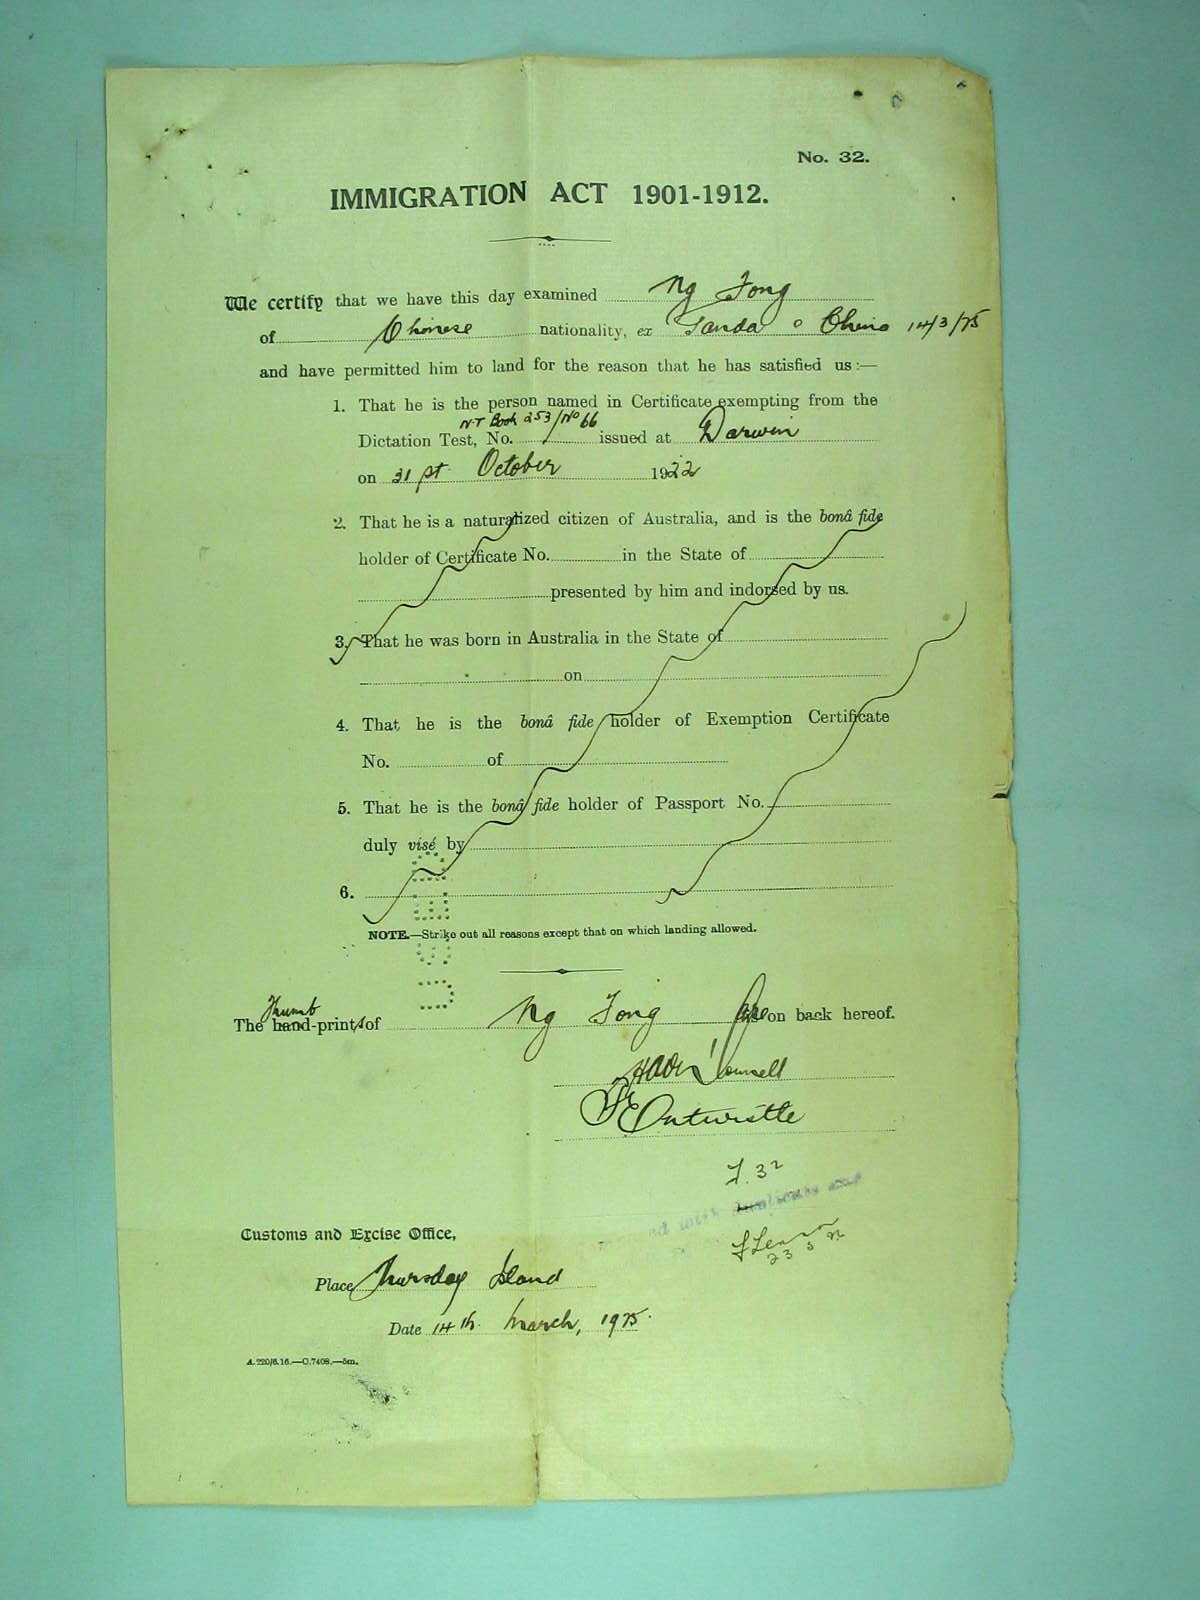 No. 32.
IMMIGRATION ACT 1901-1912.
We certify that we have this day examined Ng Fong
of Chinese nationality, ex Tanda o China 14/3/25
and have permitted him to land for the reason that he has satisfied us :—
1. That he is the person named in Certificate exempting from the
N.T Book 253/No 66
Dictation Test, No. issued at Darwin
on 31st October 1922
2. That he is a naturalized citizen of Australia, and is the bonâ fide
holder of Certificate No. in the State of
presented by him and indorsed by us.
3. That he was born in Australia in the State of
on
4. That he is the bonâ fide holder of Exemption Certificate
No. of
5. That he is the bonâ fide holder of Passport No.
duly visé by
6.
NOTE.—Strike out all reasons except that on which landing allowed.
Thumb
The hand-prints of Ng Fong are on back hereof.
Entwistle
F. 32
Customs and Excise Office,
Place Thursday Island
Date 14th March, 1925.
A.220/6.16.—C.7408.—5m.